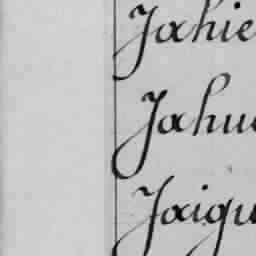 Jahie
Jahu
Jaigu